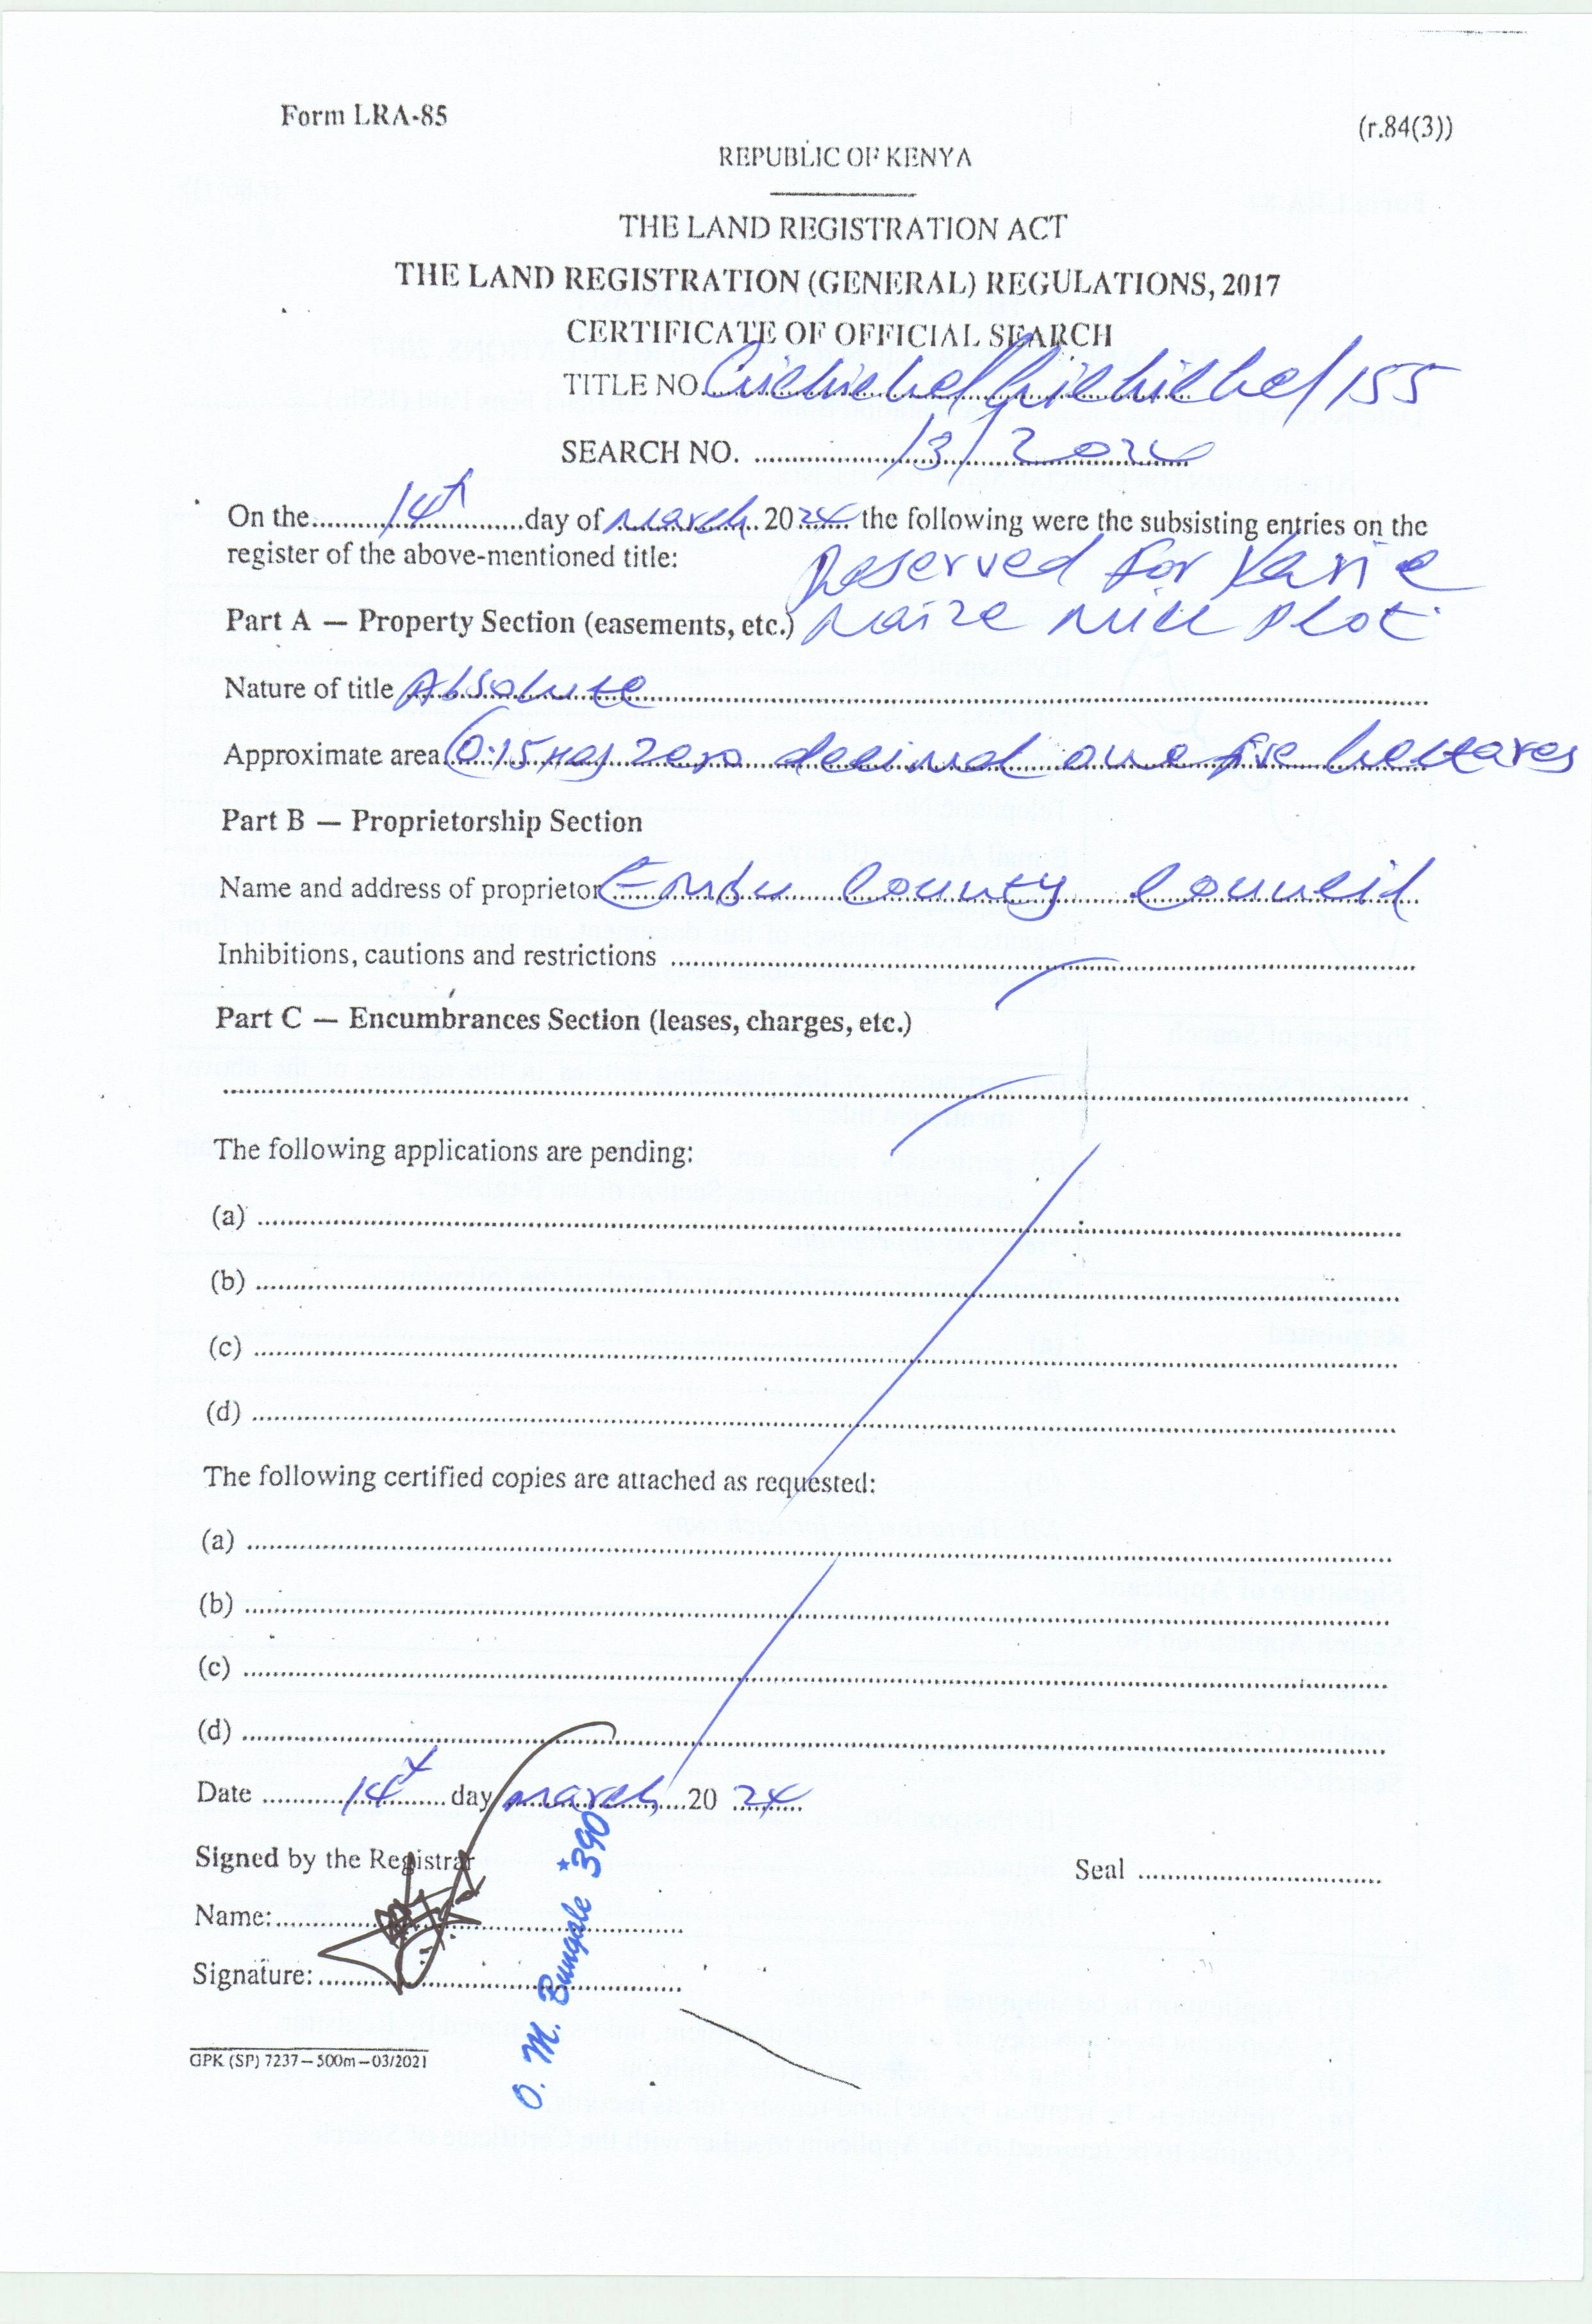 Form LRA-85
(r.84(3))
REPUBLIC OF KENYA
THE LAND REGISTRATION ACT
THE LAND REGISTRATION (GENERAL) REGULATIONS, 2017
CERTIFICATE OF OFFICIAL SEARCH
TITLE NO. /155
SEARCH NO. 13/2024
On the 14th day of March 2024 the following were the subsisting entries on the
register of the above-mentioned title:
Reserved for
Part A — Property Section (easements, etc.) Maize Mill Plot.
Nature of title Absolute
Approximate area (0.15 Ha) zero decimal one five hectares
Part B — Proprietorship Section
Name and address of proprietor Embu County Council
Inhibitions, cautions and restrictions
Part C — Encumbrances Section (leases, charges, etc.)
The following applications are pending:
(a)
(b)
(c)
(d)
The following certified copies are attached as requested:
(a)
(b)
(c)
(d)
Date 14th day March 2024
Signed by the Registrar
Seal
Name:
Signature:
O. M. Bungale *390
GPK (SP) 7237—500m—03/2021